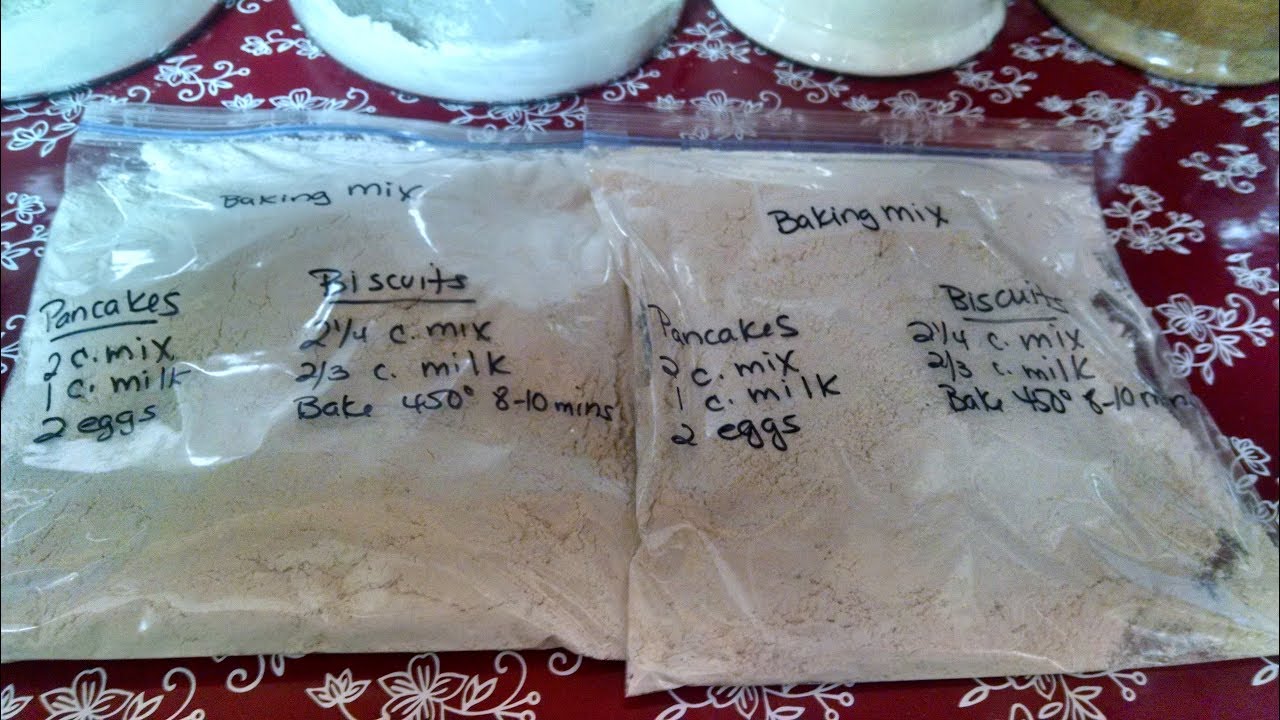 Baking mix
Pancakes
2 c. mix
1 c. milk
2 eggs
Biscuits
2 1/4 c. mix
2/3 c. milk
Bake 450° 8-10 mins
Baking mix
Pancakes
2 c. mix
1 c. milk
2 eggs
Biscuits
2 1/4 c. mix
2/3 c. milk
Bake 450° 8-10 mins